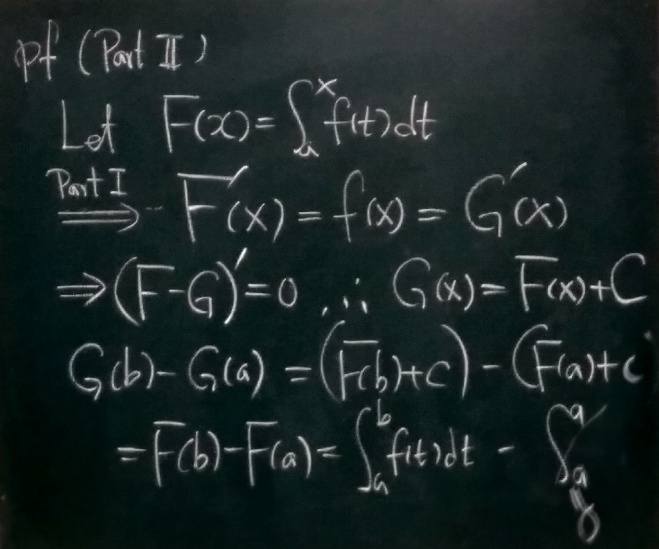 pf (Part II)
Let F(x) = ∫ₐˣ f(t)dt
Part I
⟹ F'(x) = f(x) = G'(x)
⟹ (F-G)' = 0 ∴ G(x) = F(x)+C
G(b)-G(a) = (F(b)+C) - (F(a)+C
= F(b)-F(a) = ∫ₐᵇ f(t)dt - ∫ₐᵃ